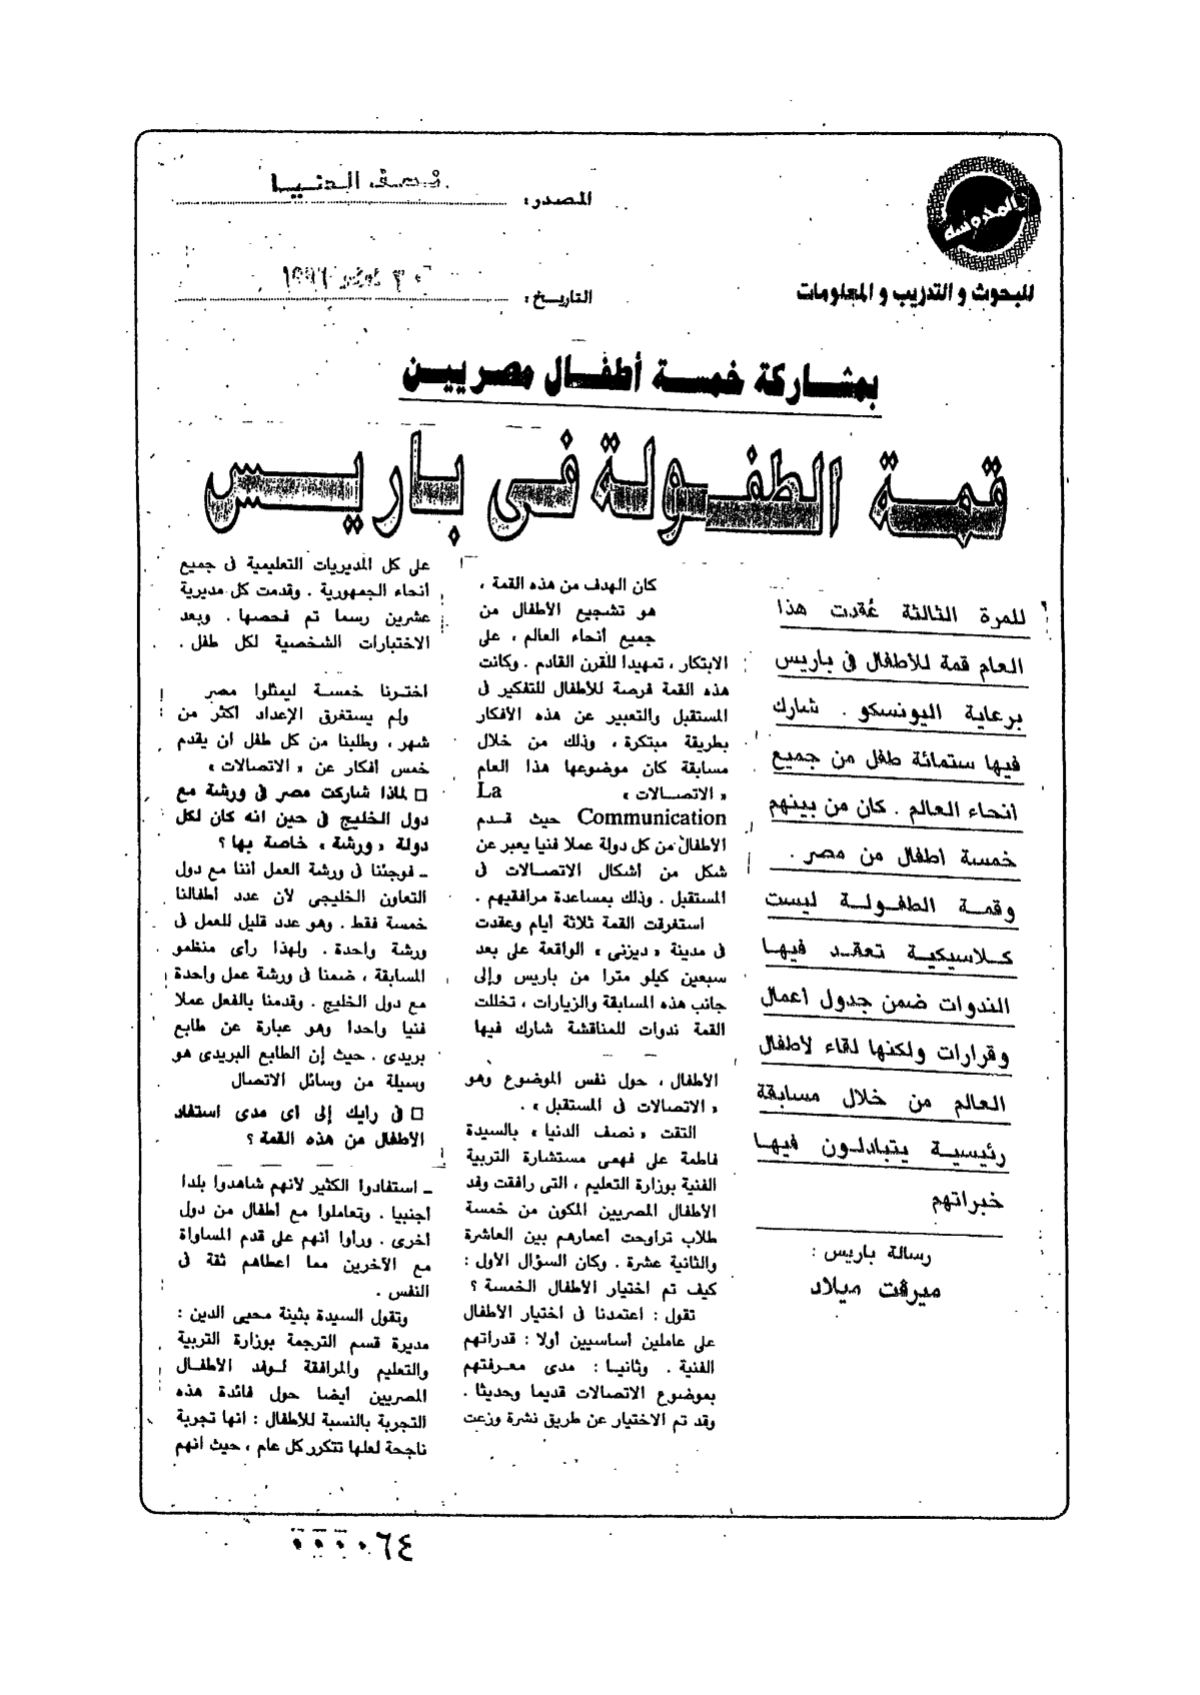 المحروسة
للبحوث و التدريب و المعلومات
المصدر: نصف الدنيا
التاريخ: ١٩٩٦
بمشاركة خمسة أطفال مصريين
قمة الطفولة فى باريس
للمرة الثالثة عُقدت هذا
العام قمة للأطفال فى باريس
برعاية اليونسكو . شارك
فيها ستمائة طفل من جميع
أنحاء العالم . كان من بينهم
خمسة أطفال من مصر .
وقمة الطفولة ليست
كلاسيكية تعقد فيها
الندوات ضمن جدول أعمال
وقرارات ولكنها لقاء لأطفال
العالم من خلال مسابقة
رئيسية يتبادلون فيها
خبراتهم
رسالة باريس :
ميرفت ميلاد
كان الهدف من هذه القمة ،
هو تشجيع الأطفال من
جميع أنحاء العالم ، على
الابتكار ، تمهيدا للقرن القادم . وكانت
هذه القمة فرصة للأطفال للتفكير فى
المستقبل والتعبير عن هذه الأفكار
بطريقة مبتكرة ، وذلك من خلال
مسابقة كان موضوعها هذا العام
« الاتصالات » La
Communication حيث قدم
الأطفال من كل دولة عملا فنيا يعبر عن
شكل من أشكال الاتصالات فى
المستقبل . وذلك بمساعدة مرافقيهم .
استغرقت القمة ثلاثة أيام وعقدت
فى مدينة « ديزنى » الواقعة على بعد
سبعين كيلو مترا من باريس وإلى
جانب هذه المسابقة والزيارات ، تخللت
القمة ندوات للمناقشة شارك فيها
الأطفال ، حول نفس الموضوع وهو
« الاتصالات فى المستقبل » .
التقت « نصف الدنيا » بالسيدة
فاطمة على فهمى مستشارة التربية
الفنية بوزارة التعليم ، التى رافقت وفد
الأطفال المصريين المكون من خمسة
طلاب تراوحت أعمارهم بين العاشرة
والثانية عشرة . وكان السؤال الأول :
كيف تم اختيار الأطفال الخمسة ؟
تقول : اعتمدنا فى اختيار الأطفال
على عاملين أساسيين أولا : قدراتهم
الفنية . وثانيا : مدى معرفتهم
بموضوع الاتصالات قديما وحديثا .
وقد تم الاختيار عن طريق نشرة وزعت
على كل المديريات التعليمية فى جميع
أنحاء الجمهورية . وقدمت كل مديرية
عشرين رسما تم فحصها . وبعد
الاختبارات الشخصية لكل طفل .
اخترنا خمسة ليمثلوا مصر
ولم يستغرق الإعداد اكثر من
شهر ، وطلبنا من كل طفل ان يقدم
خمس أفكار عن « الاتصالات »
□ لماذا شاركت مصر فى ورشة مع
دول الخليج فى حين انه كان لكل
دولة « ورشة » خاصة بها ؟
ــ فوجئنا فى ورشة العمل أننا مع دول
التعاون الخليجى لأن عدد أطفالنا
خمسة فقط . وهو عدد قليل للعمل فى
ورشة واحدة . ولهذا رأى منظمو
المسابقة ، ضمنا فى ورشة عمل واحدة
مع دول الخليج . وقدمنا بالفعل عملا
فنيا واحدا وهو عبارة عن طابع
بريدى . حيث إن الطابع البريدى هو
وسيلة من وسائل الاتصال
□ فى رايك إلى اى مدى استفاد
الأطفال من هذه القمة ؟
ــ استفادوا الكثير لأنهم شاهدوا بلدا
أجنبيا . وتعاملوا مع أطفال من دول
أخرى . ورأوا أنهم على قدم المساواة
مع الآخرين مما اعطاهم ثقة فى
النفس .
وتقول السيدة بثينة محيى الدين :
مديرة قسم الترجمة بوزارة التربية
والتعليم والمرافقة لوفد الأطفال
المصريين أيضا حول فائدة هذه
التجربة بالنسبة للأطفال : انها تجربة
ناجحة لعلها تتكرر كل عام ، حيث أنهم
٠٠٠٠٦٤